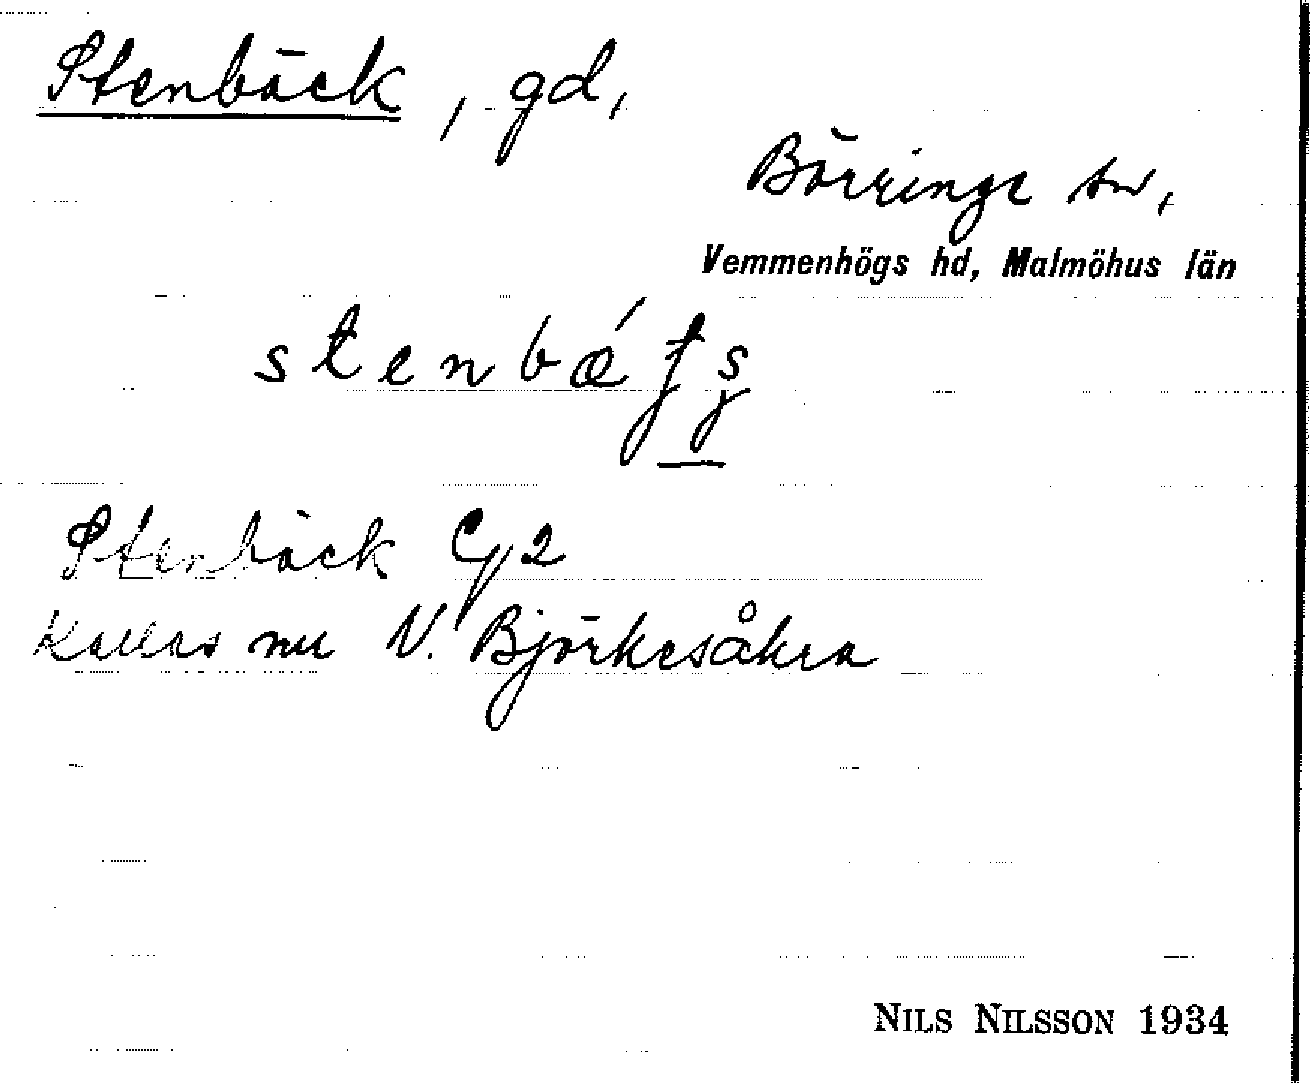 Stenbäck, gd,
Börringe sn,
Vemmenhögs hd, Malmöhus län
Stenbäck C/2
Kallas nu N. Björkesåkra
NILS NILSSON 1934